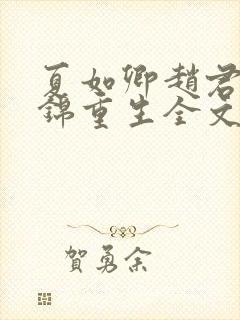 夏如卿趙君
錦重生全文
賀勇余